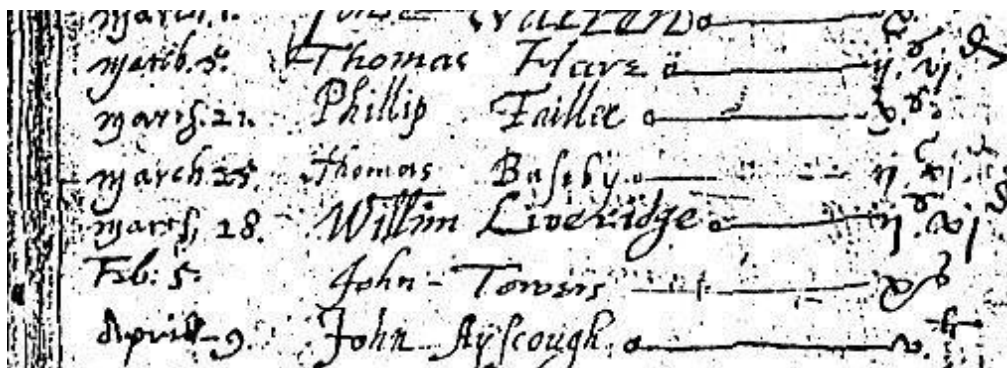 March. 5. Thomas Hare ij.s vj.d
March. 21. Phillip Taillie v.s
March 25. Thomas Baseby ij.s vj.d
March. 28. Willim Liveridge ij.s vj.d
Feb: 5. John Towers xs
Aprill-9. John Ayscough v.s